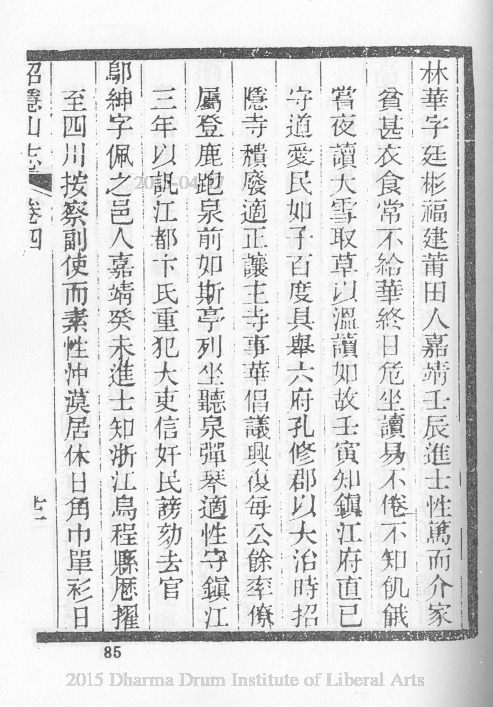 林華字廷彬福建莆田人嘉靖壬辰進士性篤而介家
貧甚衣食常不給華終日危坐讀易不倦不知飢餓
嘗夜讀大雪取草以溫讀如故壬寅知鎮江府直己
守道愛民如子百度具舉六府孔修郡以大治時招
隱寺積廢適正讓主寺事華倡議興復每公餘率僚
屬登鹿跑泉前如斯亭列坐聽泉彈琴適性守鎮江
三年以訊江都卞氏重犯大吏信奸民謗劾去官
鄔紳字佩之邑人嘉靖癸未進士知浙江烏程縣歷擢
至四川按察副使而素性沖漠居休日角巾單衫日
招隱山志 卷四
85
2015 Dharma Drum Institute of Liberal Arts